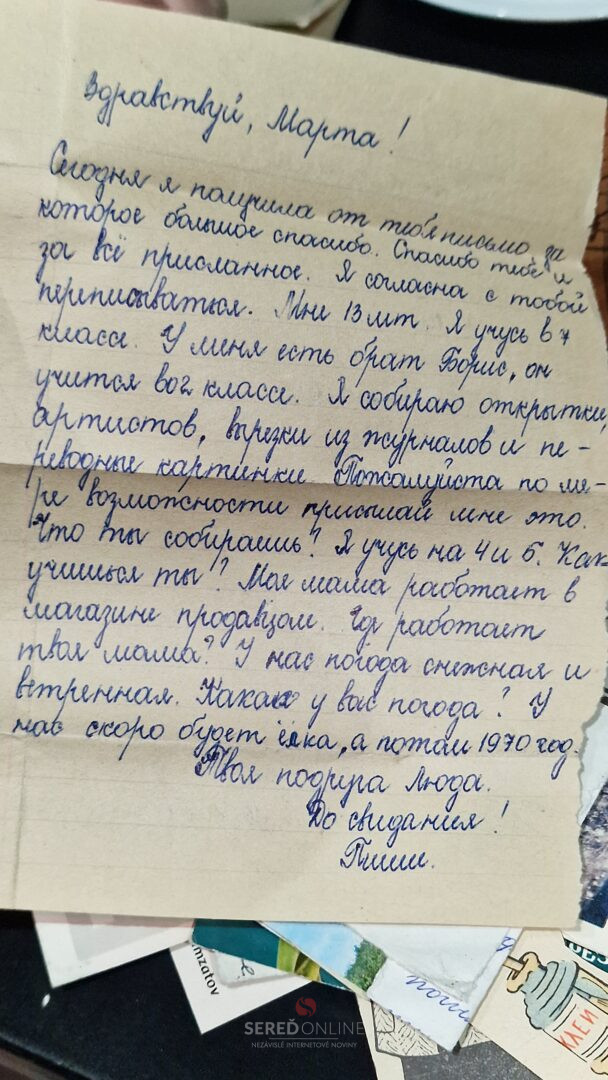 Здравствуй, Марта!
Сегодня я получила от тебя письмо за
которое большое спасибо. Спасибо тебе и
за всё присланное. Я согласна с тобой
переписываться. Мне 13 лет. Я учусь в 7
классе. У меня есть брат Борис, он
учится во 2 классе. Я собираю открытки,
артистов, вырезки из журналов и пе-
реводные картинки. Пожалуйста по ме-
ре возможности присылай мне это.
Что ты собираешь? Я учусь на 4 и 5. Как
учишься ты? Моя мама работает в
магазине продавцом. Где работает
твоя мама? У нас погода снежная и
ветренная. Какая у вас погода? У
нас скоро будет ёлка, а потом 1970 год.
Твоя подруга Люда.
До свидания!
Пиши.
mzatov
КЛЕЙ
SEREĎONLINE
NEZÁVISLÉ INTERNETOVÉ NOVINY